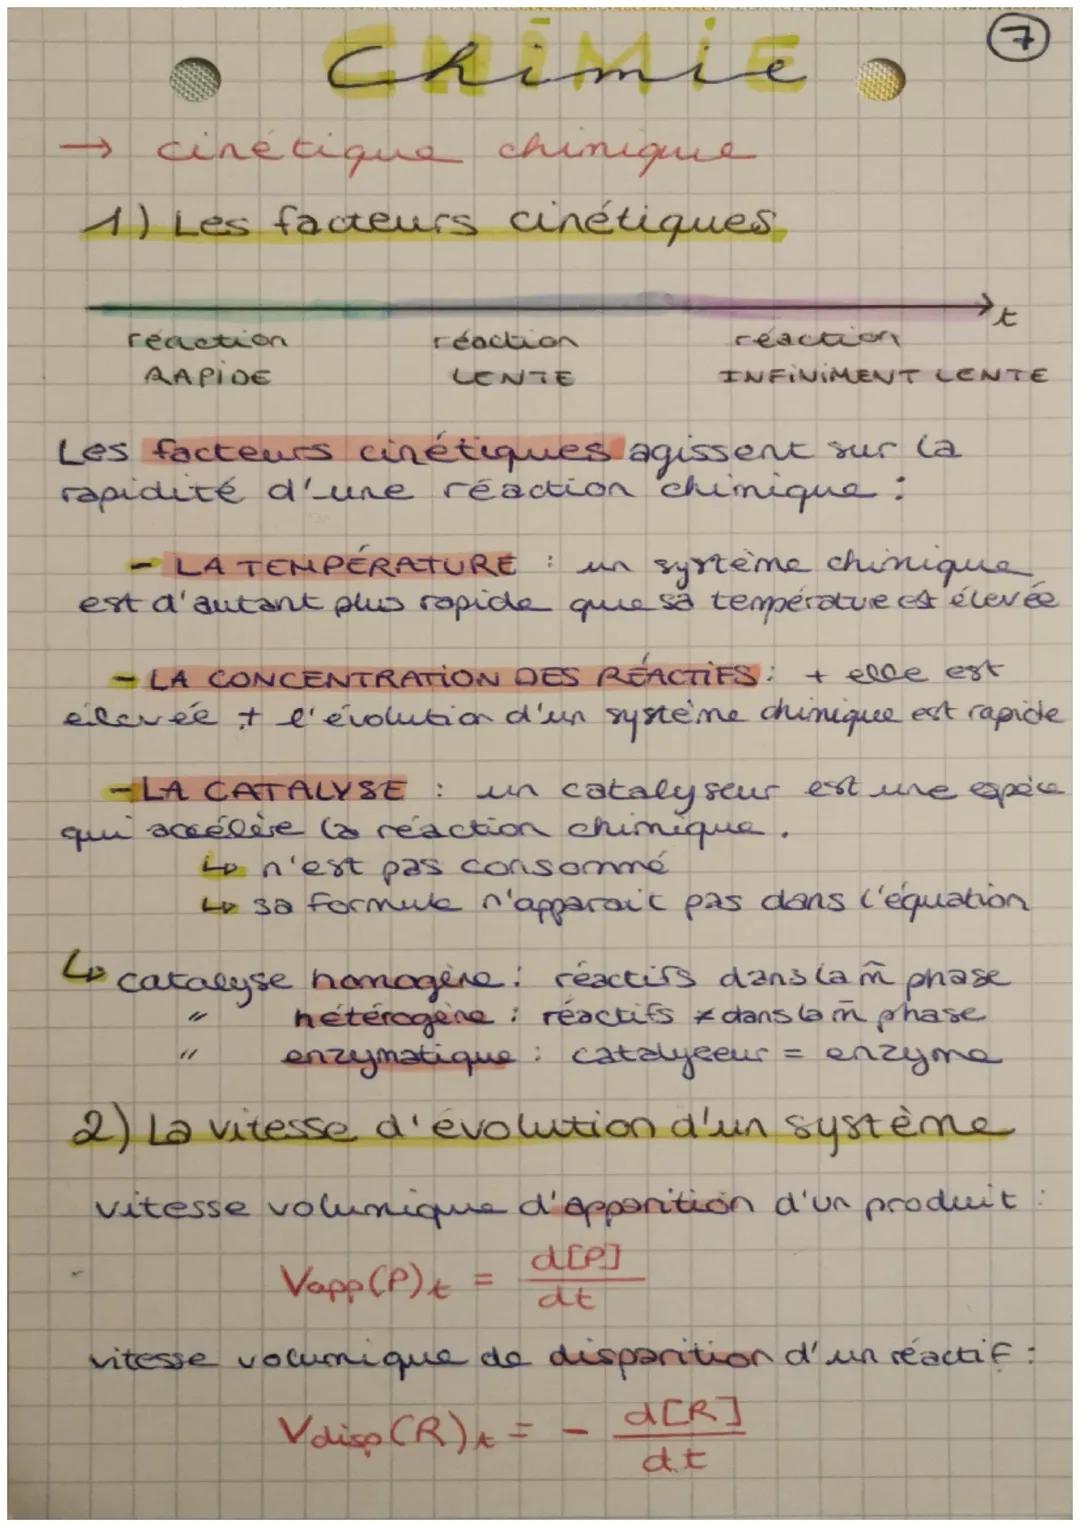 Chimie
7
→ cinétique chimique
1) Les facteurs cinétiques
t
réaction RAPIDE
réaction LENTE
réaction INFINIMENT LENTE
Les facteurs cinétiques agissent sur la
rapidité d'une réaction chimique :
- LA TEMPÉRATURE : un système chimique
est d'autant plus rapide que sa température est élevée
- LA CONCENTRATION DES RÉACTIFS : + elle est
élevée + l'évolution d'un système chimique est rapide
- LA CATALYSE : un catalyseur est une espèce
qui accélère la réaction chimique.
↳ n'est pas consommé
↳ sa formule n'apparait pas dans l'équation
↳ catalyse homogène : réactifs dans la m̃ phase
" hétérogène : réactifs ≠ dans la m̃ phase
" enzymatique : catalyseur = enzyme
2) La vitesse d'évolution d'un système
vitesse volumique d'apparition d'un produit :
Vapp(P)t = d[P] / dt
vitesse volumique de disparition d'un réactif :
Vdisp(R)t = - d[R] / dt